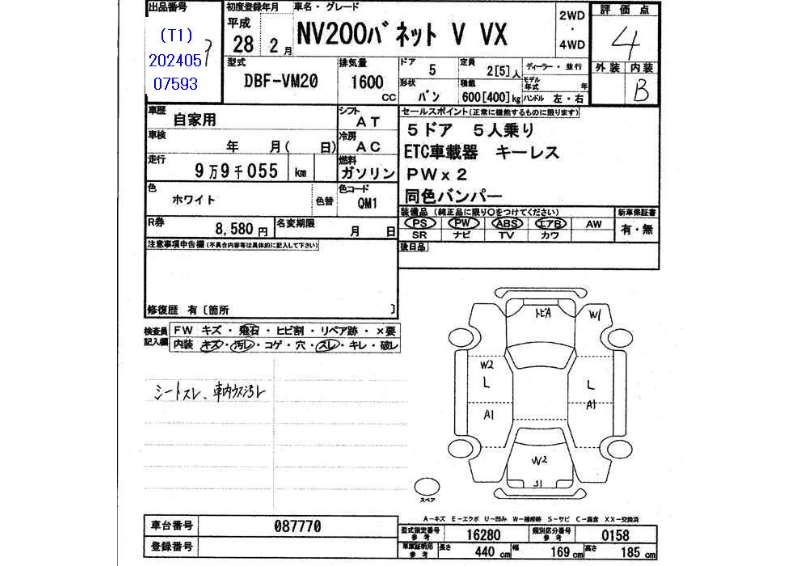 出品番号
(T1)
202405
07593
7
初度登録年月
平成
28 2 月
車名・グレード
NV200バネット V VX
2WD
・
4WD
評価点
4
外装 内装
B
型式
DBF-VM20
排気量
1600
CC
ドア
5
定員
2[5]人
ディーラー・並行
形状
バン
積載
600[400]kg
モデル年式 年
ハンドル 左・右
車歴
自家用
シフト
AT
車検
年 月( 日)
冷房
AC
走行
9万9千055 km
燃料
ガソリン
色
ホワイト
色替
色コード
QM1
R券
8,580円
名変期限
月 日
セールスポイント(正常に機能するものに限ります)
5ドア 5人乗り
ETC車載器 キーレス
PWx2
同色バンパー
装備品 (純正品に限り○をつけてください)
PS PW ABS エアB AW
SR ナビ TV カワ
新車保証書
有・無
後日品
注意事項申告欄(不具合内容等は具体的に記入して下さい)
修復歴 有〔箇所 〕
検査員記入欄
FW キズ・飛石・ヒビ割・リペア跡・×要
内装 キズ・汚レ・コゲ・穴・スレ・キレ・破レ
シートスレ、車内ウス汚レ
トビA
W1
W2
L
L
A1
A1
W2
スペア
A-キズ E-エクボ U-凹み W-補修跡 S-サビ C-腐食 XX-交換済
車台番号
087770
登録番号
型式指定番号
参考
16280
類別区分番号
参考
0158
車庫証明用
参考
長さ
440 cm
幅
169 cm
高さ
185 cm